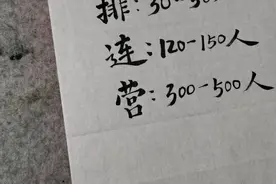 排:30-50
连:120-150人
营:300-500人